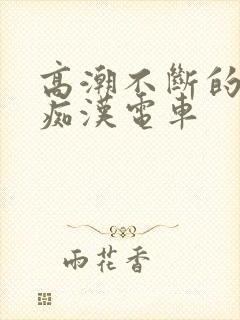 高潮不斷的
痴漢電車
雨花香